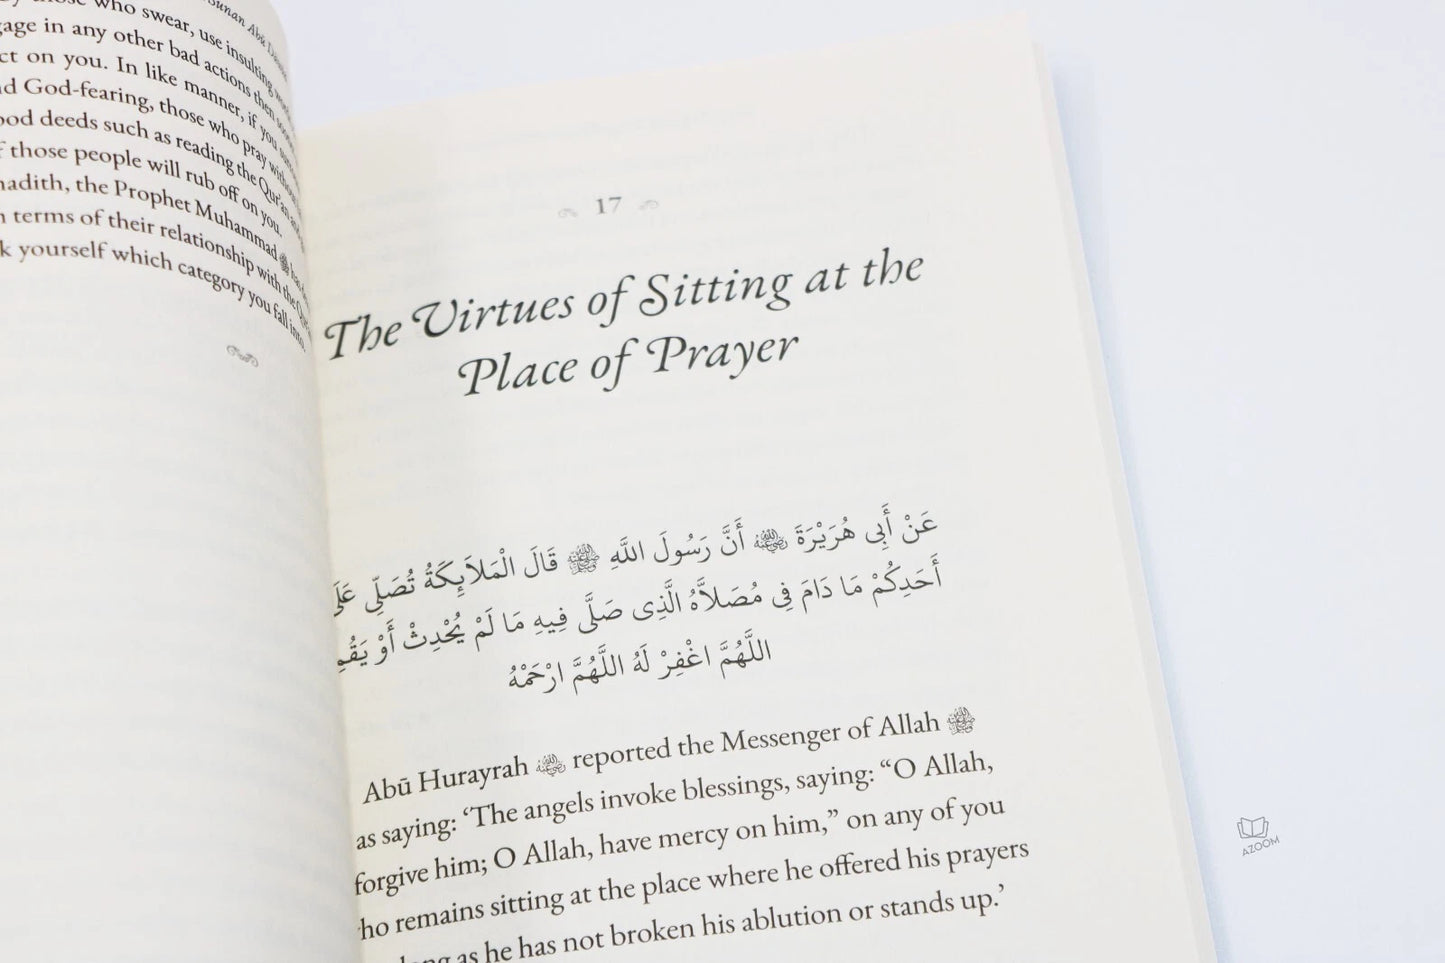 Sunan Abū
who swear, use insulting
gage in any other bad actions then
ct on you. In like manner, if you
d God-fearing, those who pray
ood deeds such as reading the Qur'an
f those people will rub off on you.
hadith, the Prophet Muhammad ﷺ
n terms of their relationship with the
k yourself which category you fall into.
17
The Virtues of Sitting at the
Place of Prayer
عَنْ أَبِي هُرَيْرَةَ ﵁ أَنَّ رَسُولَ اللَّهِ ﷺ قَالَ الْمَلاَئِكَةُ تُصَلِّي عَلَى
أَحَدِكُمْ مَا دَامَ فِي مُصَلاَّهُ الَّذِي صَلَّى فِيهِ مَا لَمْ يُحْدِثْ أَوْ يَقُمِ
اللَّهُمَّ اغْفِرْ لَهُ اللَّهُمَّ ارْحَمْهُ
Abū Hurayrah ﵁ reported the Messenger of Allah ﷺ
as saying: ‘The angels invoke blessings, saying: “O Allah,
forgive him; O Allah, have mercy on him,” on any of you
who remains sitting at the place where he offered his prayers
long as he has not broken his ablution or stands up.’
AZOOM